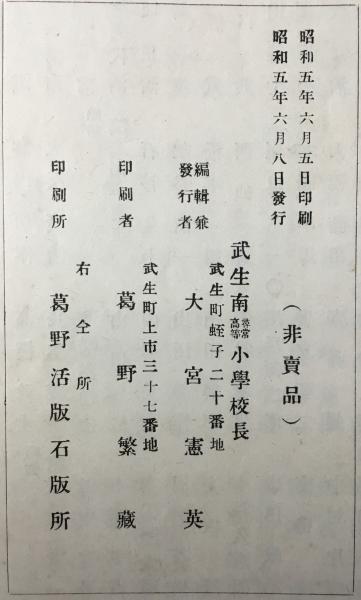 昭和五年六月五日印刷
昭和五年六月八日發行
（非賣品）
武生南尋常高等小學校長
武生町蛭子二十番地
編輯兼發行者　大宮憲英
武生町上市三十七番地
印刷者　葛野繁藏
右仝所
印刷所　葛野活版石版所